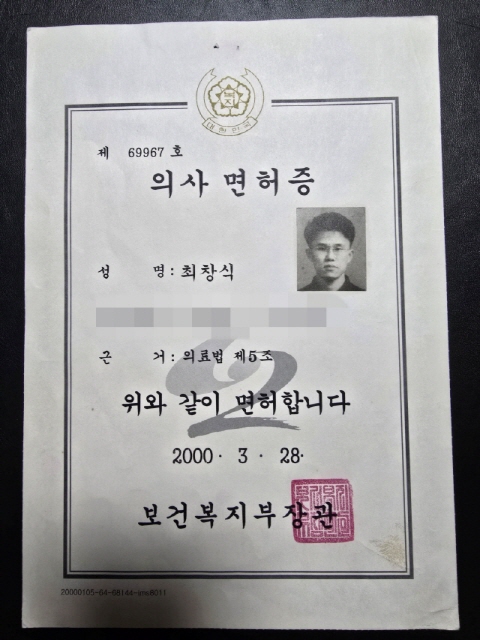 대한민국
제 69967 호
의사 면허증
성 명 : 최창식
근 거 : 의료법 제5조
위와 같이 면허합니다
2000 · 3 · 28 ·
보건복지부장관